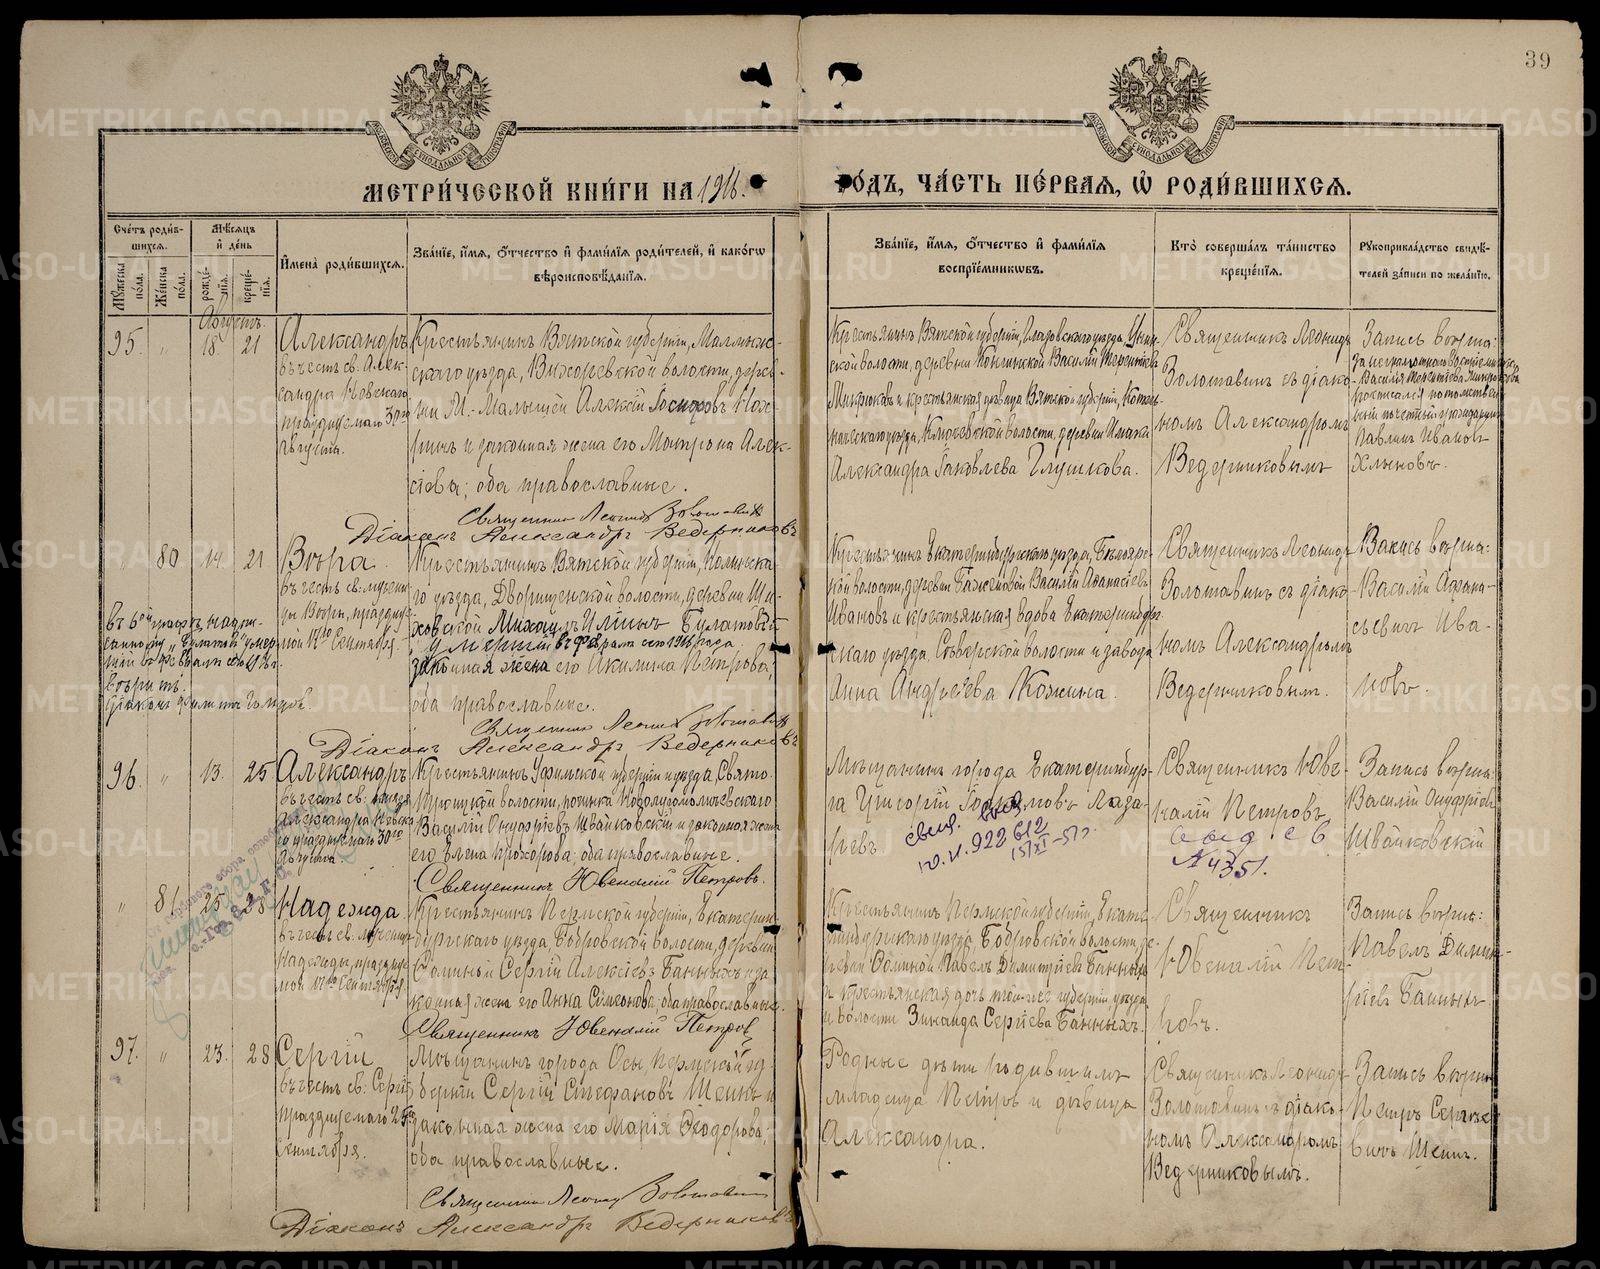 39
МОСКОВСКОЙ СѴНОДАЛЬНОЙ ТИПОГРАФІИ
МОСКОВСКОЙ СѴНОДАЛЬНОЙ ТИПОГРАФІИ
МЕТРИ́ЧЕСКОЙ КНИ́ГИ НА 1916.
ГО́ДЪ, ЧА́СТЬ ПЕ́РВАЯ, Ѡ РОДИ́ВШИХСЯ.
Сче́тъ роди́в-
шихся.
Мꙋ́жеска
по́ла.
Же́нска
по́ла.
Мѣ́сяцъ
и́ де́нь
рожде́-
нія.
креще́-
нія.
И҆мена̀ роди́вшихся.
Зва́ніе, и҆́мя, ѻ҆́тчество и҆ фами́лія роди́телей, и҆ како́гѡ
вѣроисповѣ́данія.
Зва́ніе, и҆́мя, ѻ҆́тчество и҆ фами́лія
воспріе́мникѡвъ.
Кто̀ соверша́лъ та́инство
креще́нія.
Рꙋкоприкла́дство свидѣ́-
телей за́писи по жела́нію.
Августъ.
95. „ 18. 21
Александръ
въ честь св. Алек-
сандра Невскаго
празднуемаго 30го
Августа.
Крестьянинъ Вятской губерніи, Малмыж-
скаго уѣзда, Вихоревской волости, дерев-
ни М.-Малышей Алексій
и законная жена его Матрона Алек-
сіева; оба православные.
Священникъ Леонидъ Золотавинъ
Діаконъ Александръ Ведерниковъ
Крестьянинъ Вятской губерніи, Глазовскаго уѣзда,
ской волости, деревни Василій Терентіевъ
и крестьянская дѣвица Вятской губерніи, Котель-
ническаго уѣзда, волости, деревни
Александра Іаковлева Глушкова.
Священникъ Леонидъ
Золотавинъ съ діако-
номъ Александромъ
Ведерниковымъ
Запись вѣрна:
за неграмотнаго
Василія Терентіева
росписался потомствен-
ный почетный гражданинъ
Павлинъ Ивановъ
Хлыновъ.
„ 80 14. 21
Вѣра
въ честь св. мучени-
цы Вѣры, праздну-
мой 17го Сентября
Крестьянинъ Вятской губерніи, Нолинска-
го уѣзда, Дворищенской волости, деревни
Михаилъ Ильинъ Булатовъ
умершій въ Февралѣ сего 1916 года
законная жена его Акилина Петрова;
оба православные.
Священникъ Леонидъ Золотавинъ
Діаконъ Александръ Ведерниковъ
Въ 6ой графѣ надпи-
санному „Булатовъ умер-
шій въ Февралѣ сего 1916 г.
вѣрить.
Крестьянинъ Екатеринбургскаго уѣзда, Бѣлояр-
кой волости, деревни Баженовой Василій Афанасіевъ
Ивановъ и крестьянская вдова Екатеринбург-
скаго уѣзда, Сѣверской волости и завода
Анна Андреева Кожина.
Священникъ Леонидъ
Золотавинъ съ діако-
номъ Александромъ
Ведерниковым.
Запись вѣрна:
Василій Афана-
сьевичъ Ива-
новъ.
96. „ 13. 25
Александръ
въ честь св. князя
Александра Невска-
го празднуемаго 30го
Августа
Крестьянинъ Уфимской губерніи и уѣзда, Свято-
Троицкой волости, починка
Василій Онуфріевъ Швайковскій и законная жена
его Елена Прохорова; оба православные.
Священникъ Ювеналій Петровъ.
Мѣщанинъ города Екатеринбур-
га Григорій Лаза-
ревъ
Священникъ Юве-
налій Петровъ
Запись вѣрна:
Василій Онуфріевъ
Швайковскій
свид. выд.
ю.и. 922612
№ 4351.
„ 81 25. 28
Надежда
въ честь св. мучениц.
Надежды, праздну-
мой 17го Сентября
Крестьянинъ Пермской губерніи, Екатерин-
бургскаго уѣзда, Бобровской волости, деревни
Сергій Алексіевъ Банныхъ и за-
конная жена его Анна Симеонова; оба православные.
Священникъ Ювеналій Петров
Крестьянинъ Пермской губерніи, Екате-
ринбургскаго уѣзда, Бобровской волости, де-
ревни Павелъ Димитріевъ Банныхъ
и крестьянская дочь той-же губерніи уѣзда
и волости Зинаида Сергіева Банныхъ.
Священникъ
Ювеналій Пет-
ровъ.
Запись вѣрна:
Павелъ Димит-
ріевъ Банныхъ
97. „ 23. 28
Сергій
въ честь св. Сергія
празднуемаго 25го
сентября.
Мѣщанинъ города Осы, Пермской гу-
берніи Сергій Стефановъ Шеинъ и
законная жена его Марія Ѳеодорова;
оба православные.
Священникъ Леонидъ Золотавинъ
Діаконъ Александръ Ведерниковъ
Родные дѣти родителямъ
младенца Петръ и дѣвица
Александра.
Священникъ Леонидъ
Золотавинъ съ діако-
номъ Александромъ
Ведерниковымъ.
Запись вѣрна
Петръ Сергѣе-
вичъ Шеинъ.
METRIKI.GASO-URAL.RU